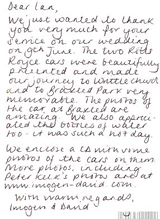 Dear Len,
We just wanted to thank
you very much for your
service on our wedding
on 9th June. The two Rolls
Royce cars were beautifully
presented and made
our journey to Writtle church
and to Braxted Park very
memorable. The photos of
the car at Braxted are
amazing. We also appreci-
ated the bottles of water
too - it was such a hot day.
We enclose a CD with some
photos of the cars on them.
More photos, including
Peter 's photos are at
www.imogen-david.com.
With warm regards,
Imogen & David